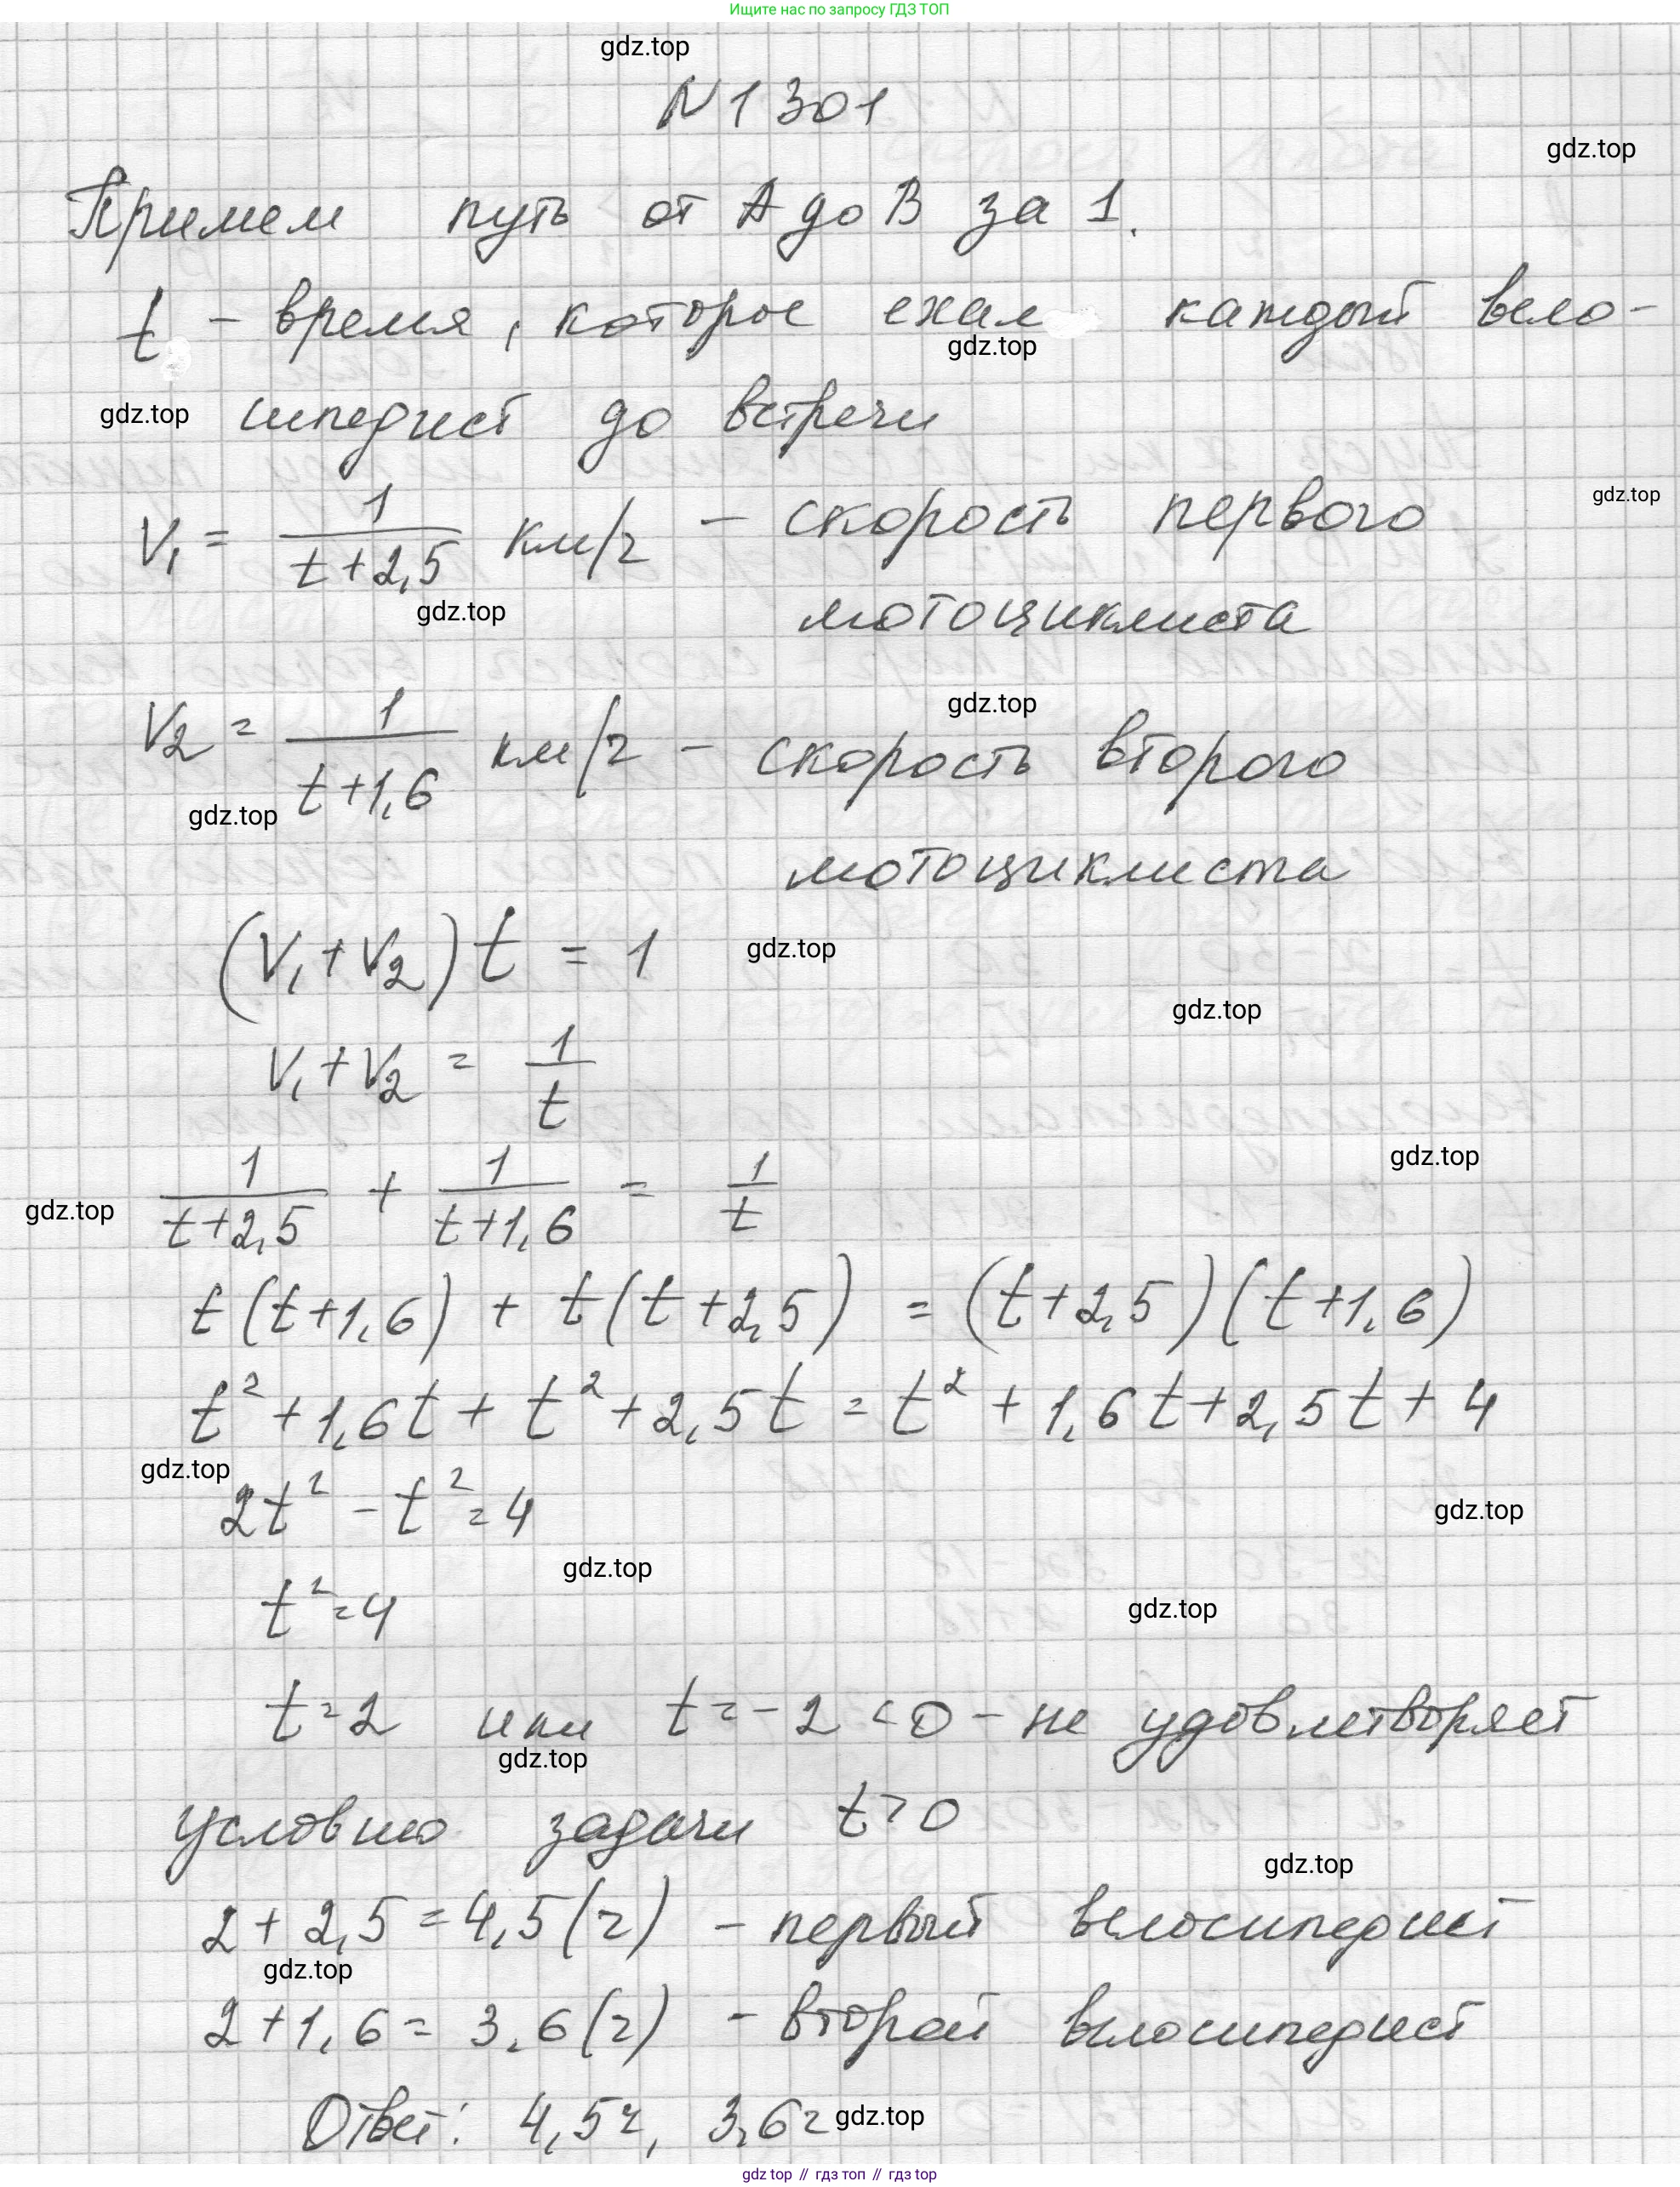 Ищите нас по запросу ГДЗ ТОП
gdz.top
N 1301
gdz.top
Примем путь от А до В за 1.
t - время, которое ехал каждый вело-
gdz.top
gdz.top
сипедист до встречи
gdz.top
V₁ = 1/(t+2,5) км/ч - скорость первого
gdz.top
мотоциклиста
gdz.top
V₂ = 1/(t+1,6) км/ч - скорость второго
gdz.top
мотоциклиста
(V₁+V₂)t = 1
gdz.top
gdz.top
V₁+V₂ = 1/t
gdz.top
gdz.top
1/(t+2,5) + 1/(t+1,6) = 1/t
t(t+1,6) + t(t+2,5) = (t+2,5)(t+1,6)
t² + 1,6t + t² + 2,5t = t² + 1,6t + 2,5t + 4
gdz.top
2t² - t² = 4
gdz.top
gdz.top
t² = 4
gdz.top
t = 2 или t = -2 < 0 - не удовлетворяет
gdz.top
условию задачи t > 0
gdz.top
2 + 2,5 = 4,5 (ч) - первый велосипедист
gdz.top
2 + 1,6 = 3,6 (ч) - второй велосипедист
Ответ: 4,5ч, 3,6ч
gdz.top
gdz.top // гдз топ // гдз top